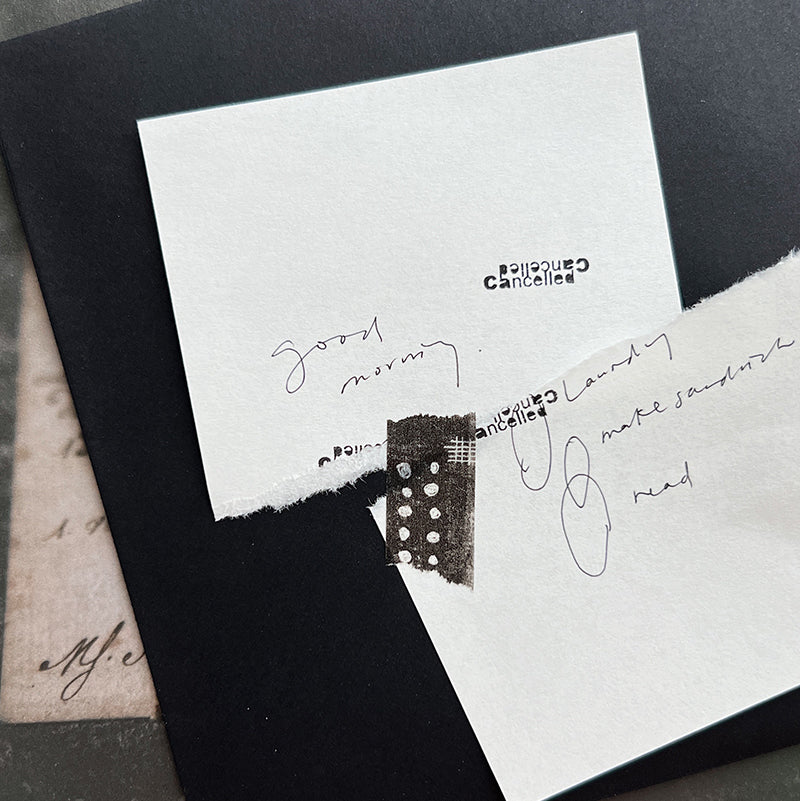 Cancelled
Cancelled
good
morning.
Cancelled
Cancelled
ancelled
Laundry
make sandwich
read